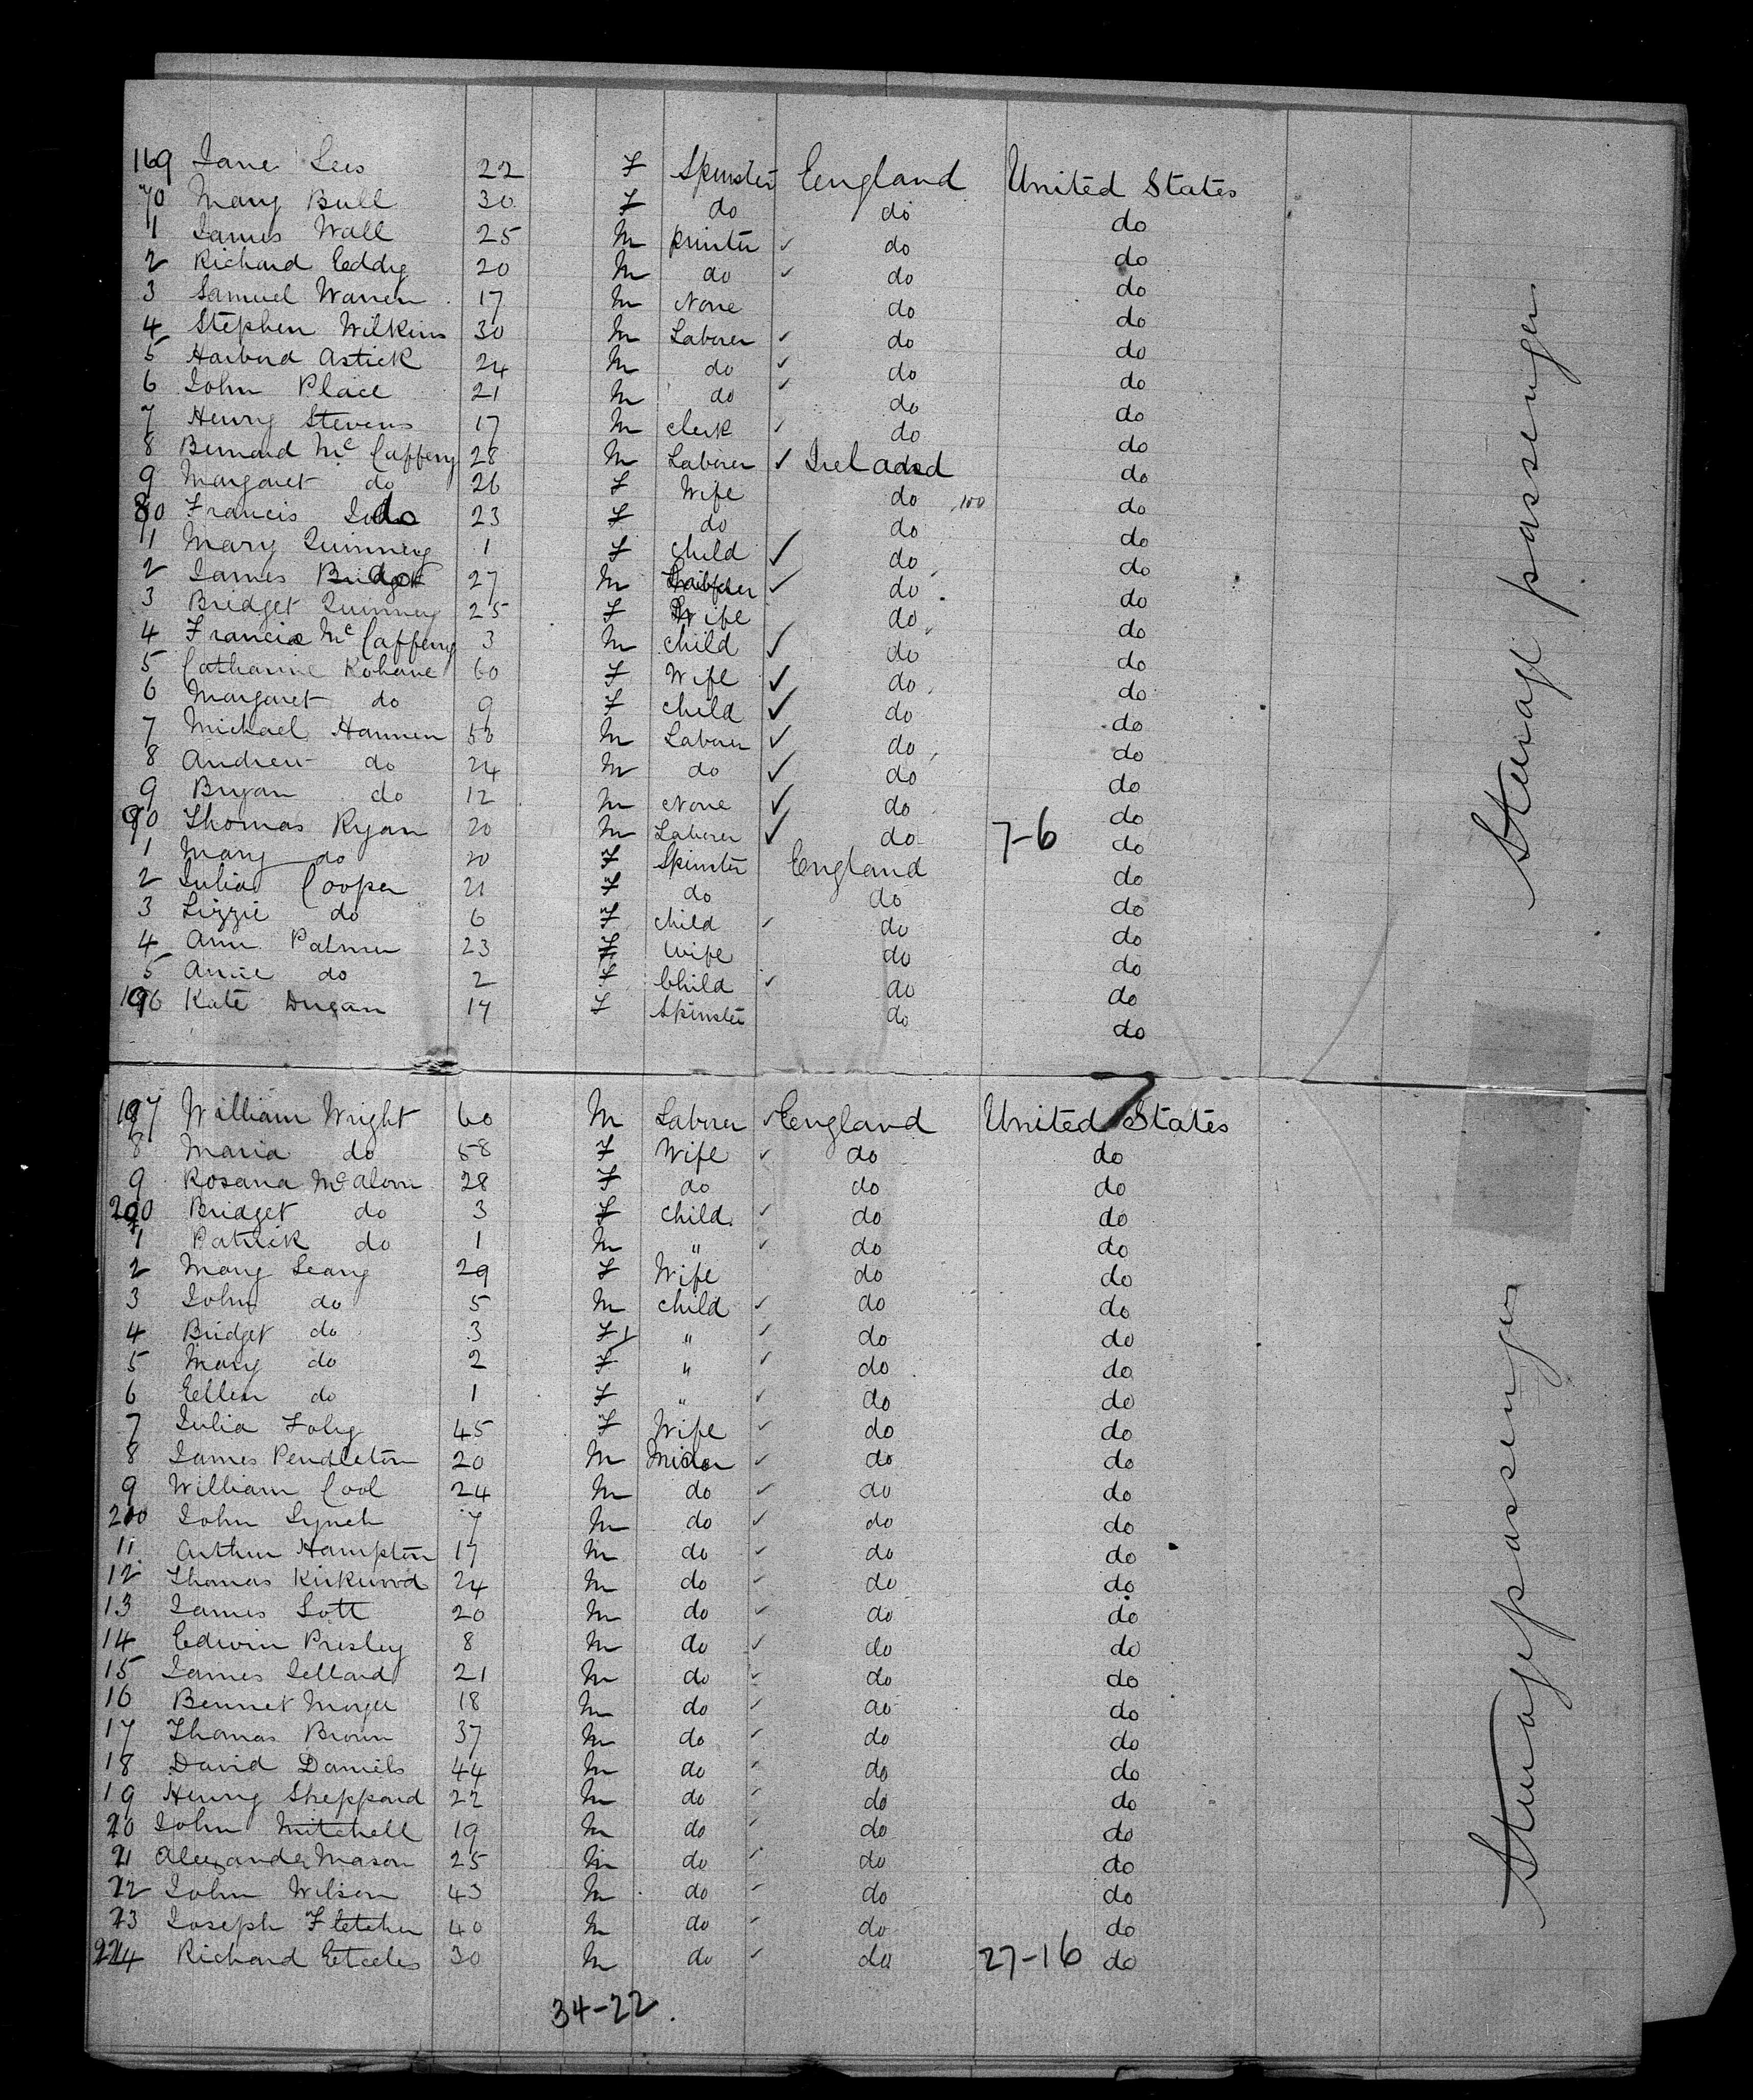 169 Jane Lees 22 F Spinster England United States
70 Mary Bull 30 F do do do
1 James Wall 25 M printer ✓ do do
2 Richard Eddy 20 M do ✓ do do
3 Samuel Warren 17 M None do do
4 Stephen Wilkins 30 M Laborer ✓ do do
5 Harbord Astick 24 M do ✓ do do
6 John Place 21 M do ✓ do do
7 Henry Stevens 17 M clerk ✓ do do
8 Bernard McCaffery 28 M Laborer ✓ Ireland do
9 Margaret do 26 F Wife do 100 do
80 Francis do 23 F do do do
1 Mary Quinney 1 F child ✓ do do
2 James do 27 M ✓ do do
3 Bridget Quinney 25 F Wife do do
4 Francis McCaffery 3 M child ✓ do do
5 Catharine Kohane 60 F Wife ✓ do do
6 Margaret do 9 F child ✓ do do
7 Michael Hannen 50 M Laborer ✓ do do
8 Andrew do 24 M do ✓ do do
9 Bryan do 12 M None ✓ do do
90 Thomas Ryan 20 M Laborer ✓ do 7-6 do
1 Mary do 20 F Spinster England do
2 Julia Cooper 21 F do do do
3 Lizzie do 6 F child ✓ do do
4 Ann Palmer 23 F Wife do do
5 Annie do 2 F Child ✓ do do
196 Kate Dugan 17 F Spinster do do
Steerage passenger
197 William Wright 60 M Laborer ✓ England United States
8 Maria do 58 F Wife ✓ do do
9 Rosana McAlorn 28 F do do do
200 Bridget do 3 F child ✓ do do
1 Patrick do 1 M " ✓ do do
2 Mary Leary 29 F Wife do do
3 John do 5 M child ✓ do do
4 Bridget do 3 F " ✓ do do
5 Mary do 2 F " ✓ do do
6 Ellen do 1 F " ✓ do do
7 Julia Foley 45 F Wife ✓ do do
8 James Pendleton 20 M Miner ✓ do do
9 William Cool 24 M do ✓ do do
210 John Lynch 7 M do ✓ do do
11 Arthur Hampton 17 M do ✓ do do
12 Thomas Kirkwood 24 M do ✓ do do
13 James Lott 20 M do ✓ do do
14 Edwin Presley 8 M do ✓ do do
15 James Jelland 21 M do ✓ do do
16 Bennet Moyer 18 M do ✓ do do
17 Thomas Brown 37 M do ✓ do do
18 David Daniels 44 M do ✓ do do
19 Henry Sheppard 22 M do ✓ do do
20 John Mitchell 19 M do ✓ do do
21 Alexander Mason 25 M do ✓ do do
22 John Wilson 43 M do ✓ do do
23 Joseph Fletcher 40 M do ✓ do do
224 Richard Etceles 30 M do ✓ do 27-16 do
34-22.
Steerage passenger